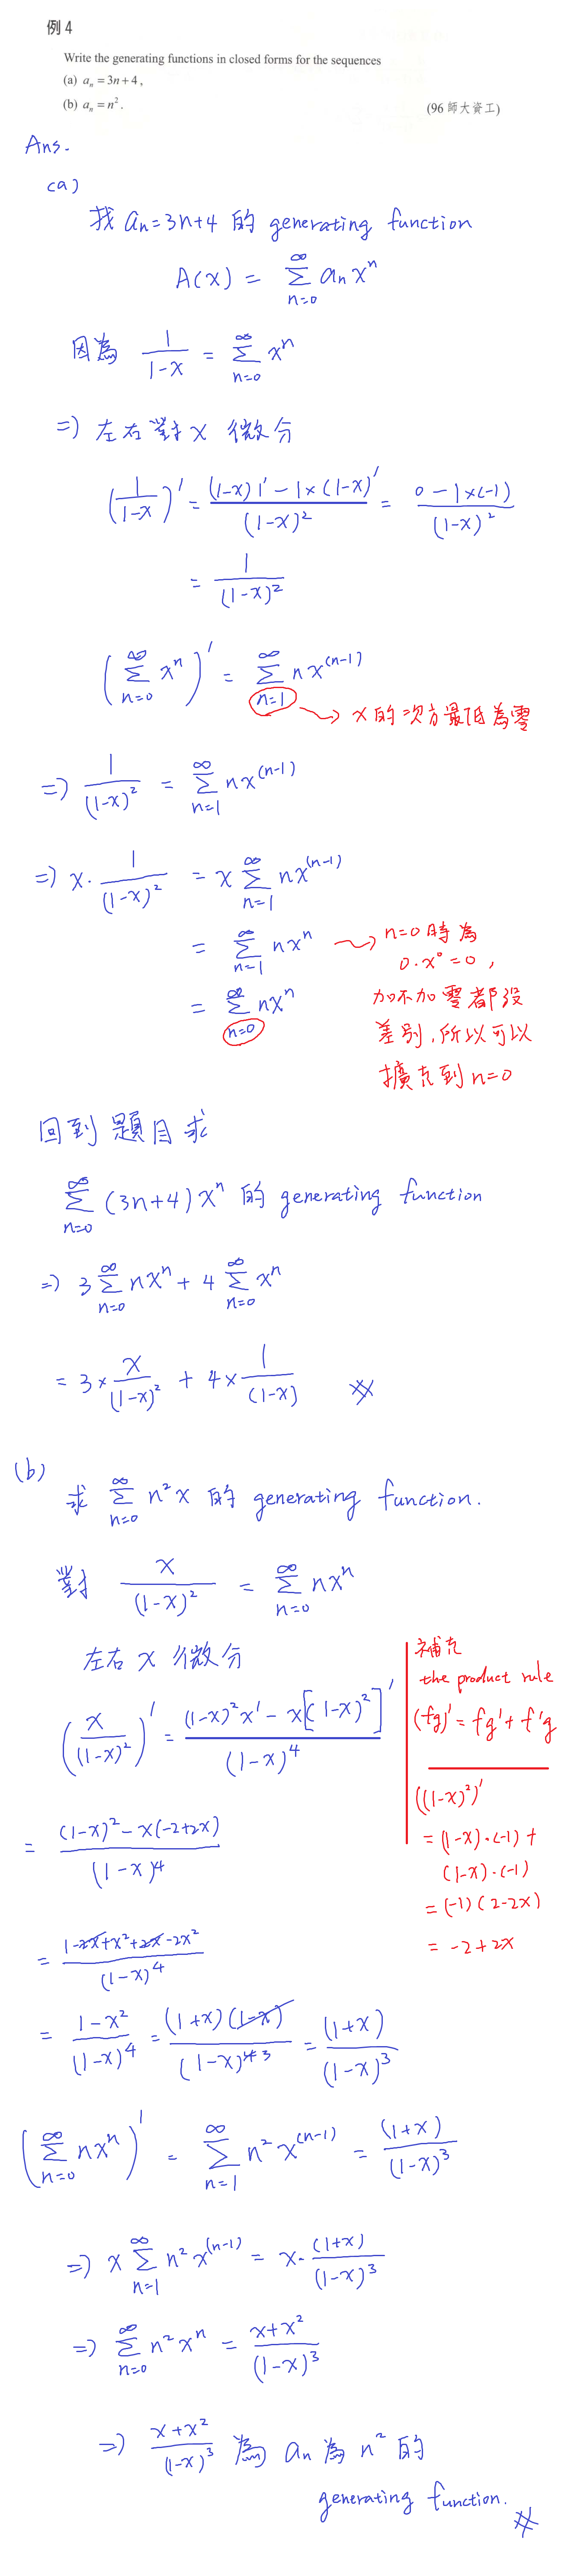 例 4
Write the generating functions in closed forms for the sequences
(a) aₙ = 3n + 4 ,
(b) aₙ = n² .
(96 師大資工)
Ans.
(a)
找 aₙ=3n+4 的 generating function
A(x) = ∑_{n=0}^{∞} aₙ xⁿ
因為 1/(1-x) = ∑_{n=0}^{∞} xⁿ
=> 左右對 x 微分
(1/(1-x))' = ((1-x)1' - 1×(1-x)')/(1-x)² = (0-1×(-1))/(1-x)²
= 1/(1-x)²
(∑_{n=0}^{∞} xⁿ)' = ∑_{n=1}^{∞} nx^(n-1)
→ x 的次方最低為零
=> 1/(1-x)² = ∑_{n=1}^{∞} nx^(n-1)
=> x · 1/(1-x)² = x ∑_{n=1}^{∞} nx^(n-1)
= ∑_{n=1}^{∞} nxⁿ → n=0 時為
0·x⁰=0,
= ∑_{n=0}^{∞} nxⁿ
加不加零都沒
差別,所以可以
擴充到 n=0
回到題目求
∑_{n=0}^{∞} (3n+4) xⁿ 的 generating function
=> 3 ∑_{n=0}^{∞} nxⁿ + 4 ∑_{n=0}^{∞} xⁿ
= 3× x/(1-x)² + 4× 1/(1-x) #
(b)
求 ∑_{n=0}^{∞} n²x 的 generating function.
對 x/(1-x)² = ∑_{n=0}^{∞} nxⁿ
左右 x 微分
(x/(1-x)²)' = ((1-x)²x' - x[(1-x)²]')/(1-x)⁴
= ((1-x)² - x(-2+2x))/(1-x)⁴
= (1-2x+x²+2x-2x²)/(1-x)⁴
= (1-x²)/(1-x)⁴ = (1+x)(1-x)/(1-x)⁴³ = (1+x)/(1-x)³
補充
the product rule
(fg)' = fg' + f'g
((1-x)²)'
= (1-x)·(-1) +
(1-x)·(-1)
= (-1)(2-2x)
= -2+2x
(∑_{n=0}^{∞} nxⁿ)' = ∑_{n=1}^{∞} n² x^(n-1) = (1+x)/(1-x)³
=> x ∑_{n=1}^{∞} n² x^(n-1) = x · (1+x)/(1-x)³
=> ∑_{n=0}^{∞} n² xⁿ = (x+x²)/(1-x)³
=> (x+x²)/(1-x)³ 為 aₙ 為 n² 的
generating function. #